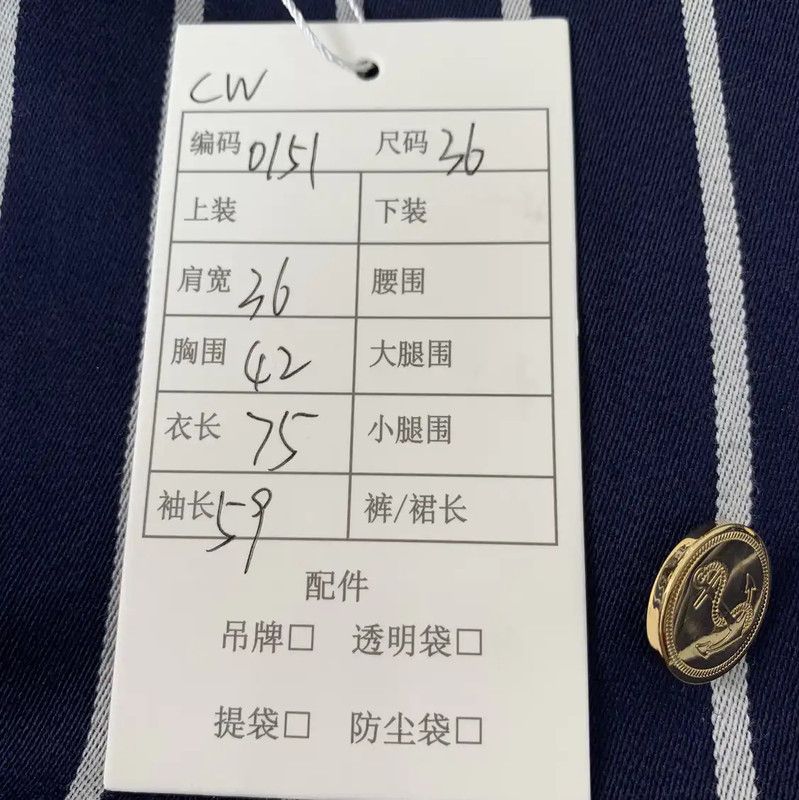 CW
编码 0151 尺码 36
上装 下装
肩宽 36 腰围
胸围 42 大腿围
衣长 75 小腿围
袖长 59 裤/裙长
配件
吊牌□ 透明袋□
提袋□ 防尘袋□